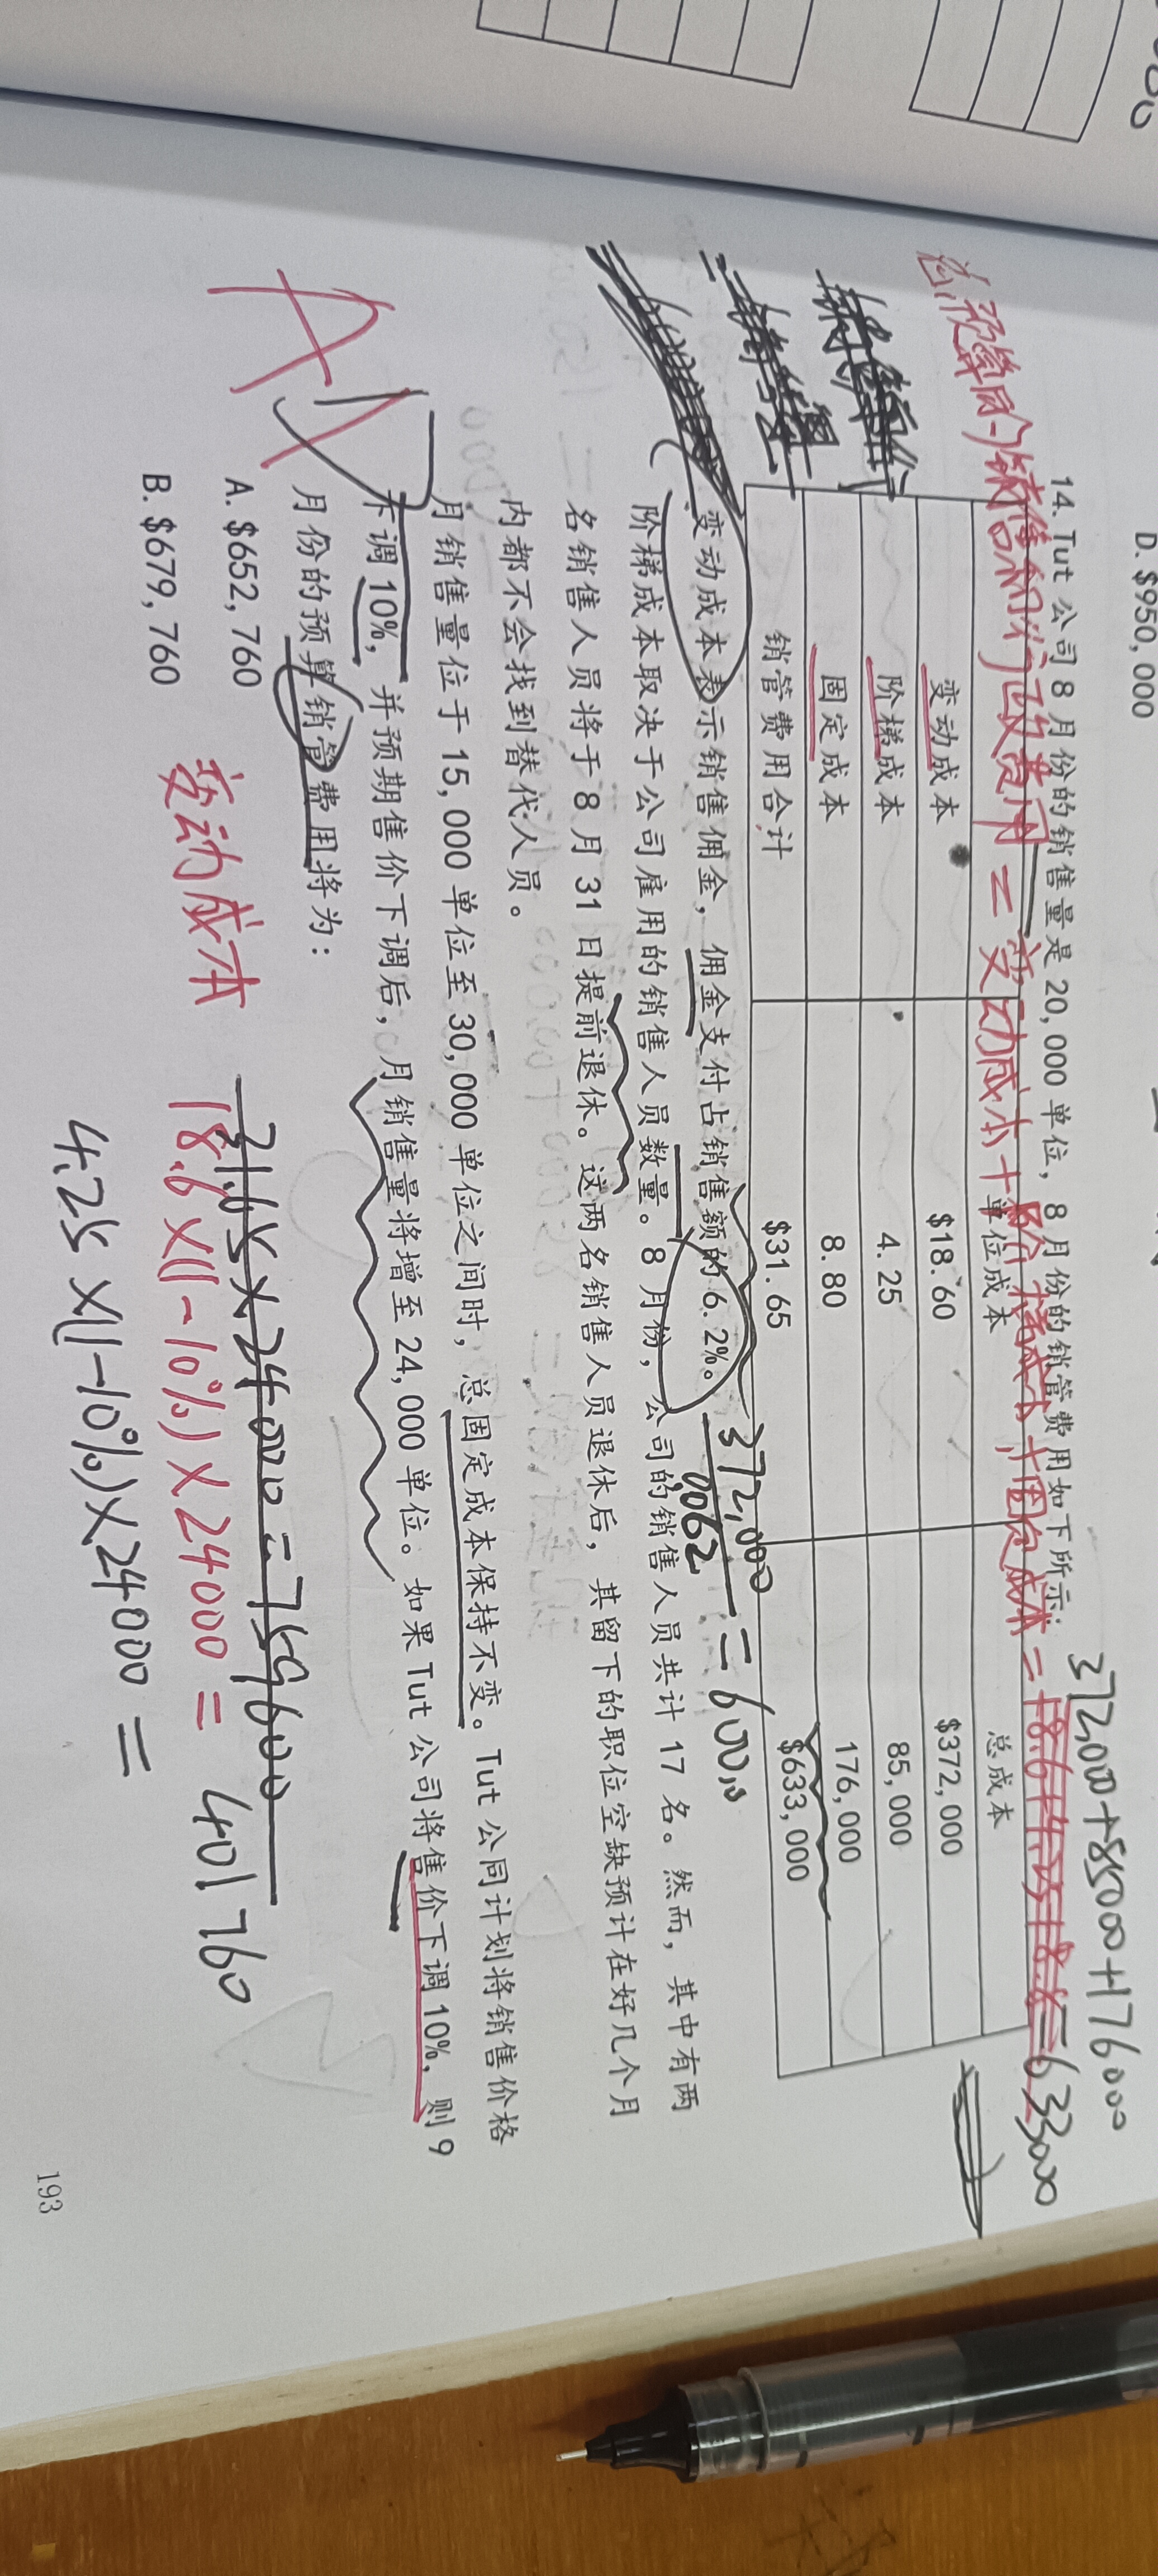 D. $950,000
372,000+85000+176000
14. Tut 公司 8 月份的销售量是 20,000 单位，8 月份的销管费用如下所示：
总预算的销售和行政费用 = 变动成本 + 阶梯成本 + 固定成本 = 633000
单位成本 总成本
变动成本 $18.60 $372,000
阶梯成本 4.25 85,000
固定成本 8.80 176,000
销管费用合计 $31.65 $633,000
372,000
0062
= 600,0
变动成本表示销售佣金，佣金支付占销售额的 6.2%。
阶梯成本取决于公司雇用的销售人员数量。8 月份，公司的销售人员共计 17 名。然而，其中有两
名销售人员将于 8 月 31 日提前退休。这两名销售人员退休后，其留下的职位空缺预计在好几个月
内都不会找到替代人员。
月销售量位于 15,000 单位至 30,000 单位之间时，总固定成本保持不变。Tut 公司计划将销售价格
下调 10%，并预期售价下调后，月销售量将增至 24,000 单位。如果 Tut 公司将售价下调 10%，则 9
月份的预算销管费用将为：
A
A. $652,760
B. $679,760
31.65×24000=759600
变动成本 18.6×(1-10%)×24000= 401760
4.25×(1-10%)×24000=
193